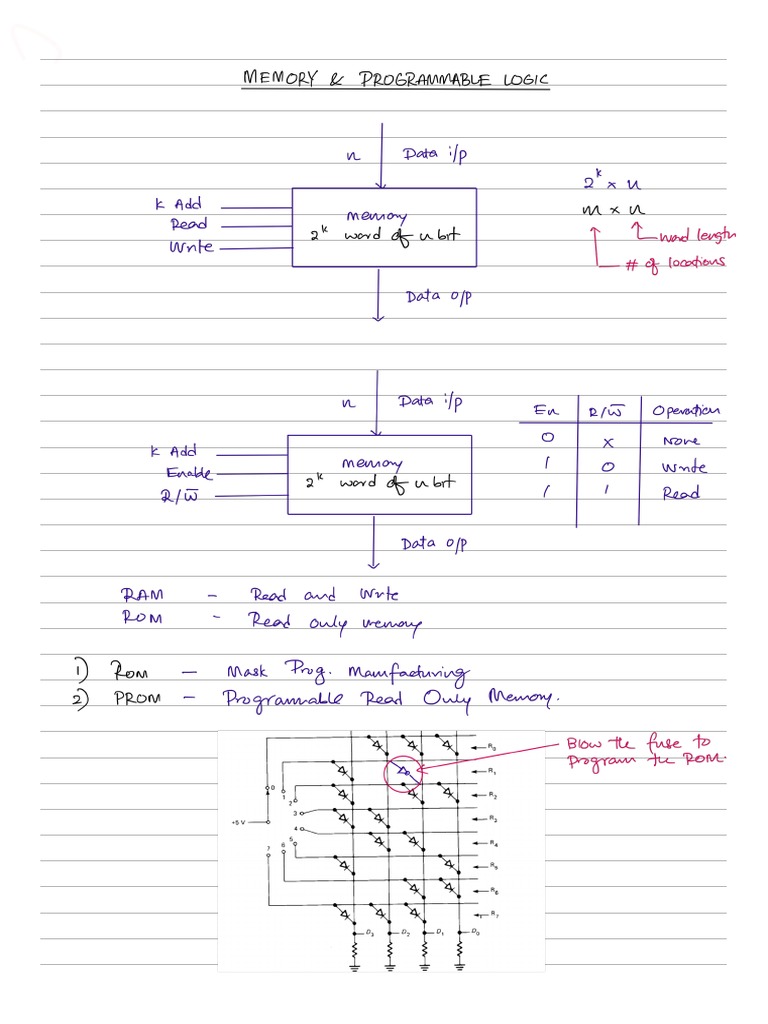 MEMORY & PROGRAMMABLE LOGIC
n Data i/p
2^k x n
k Add
m x n
Read
memory
Write
2^k word of n bit
word length
# of locations
Data o/p
n Data i/p
En R/W̅ Operation
0 x None
1 0 Write
1 1 Read
k Add
Enable
R/W̅
memory
2^k word of n bit
Data o/p
RAM - Read and Write
ROM - Read only memory
1) Rom - Mask Prog. Manufacturing
2) PROM - Programmable Read Only Memory.
Blow the fuse to
Program the ROM.
R0
R1
R2
R3
R4
R5
R6
R7
+5 V
0
1
2
3
4
5
6
7
D3 D2 D1 D0